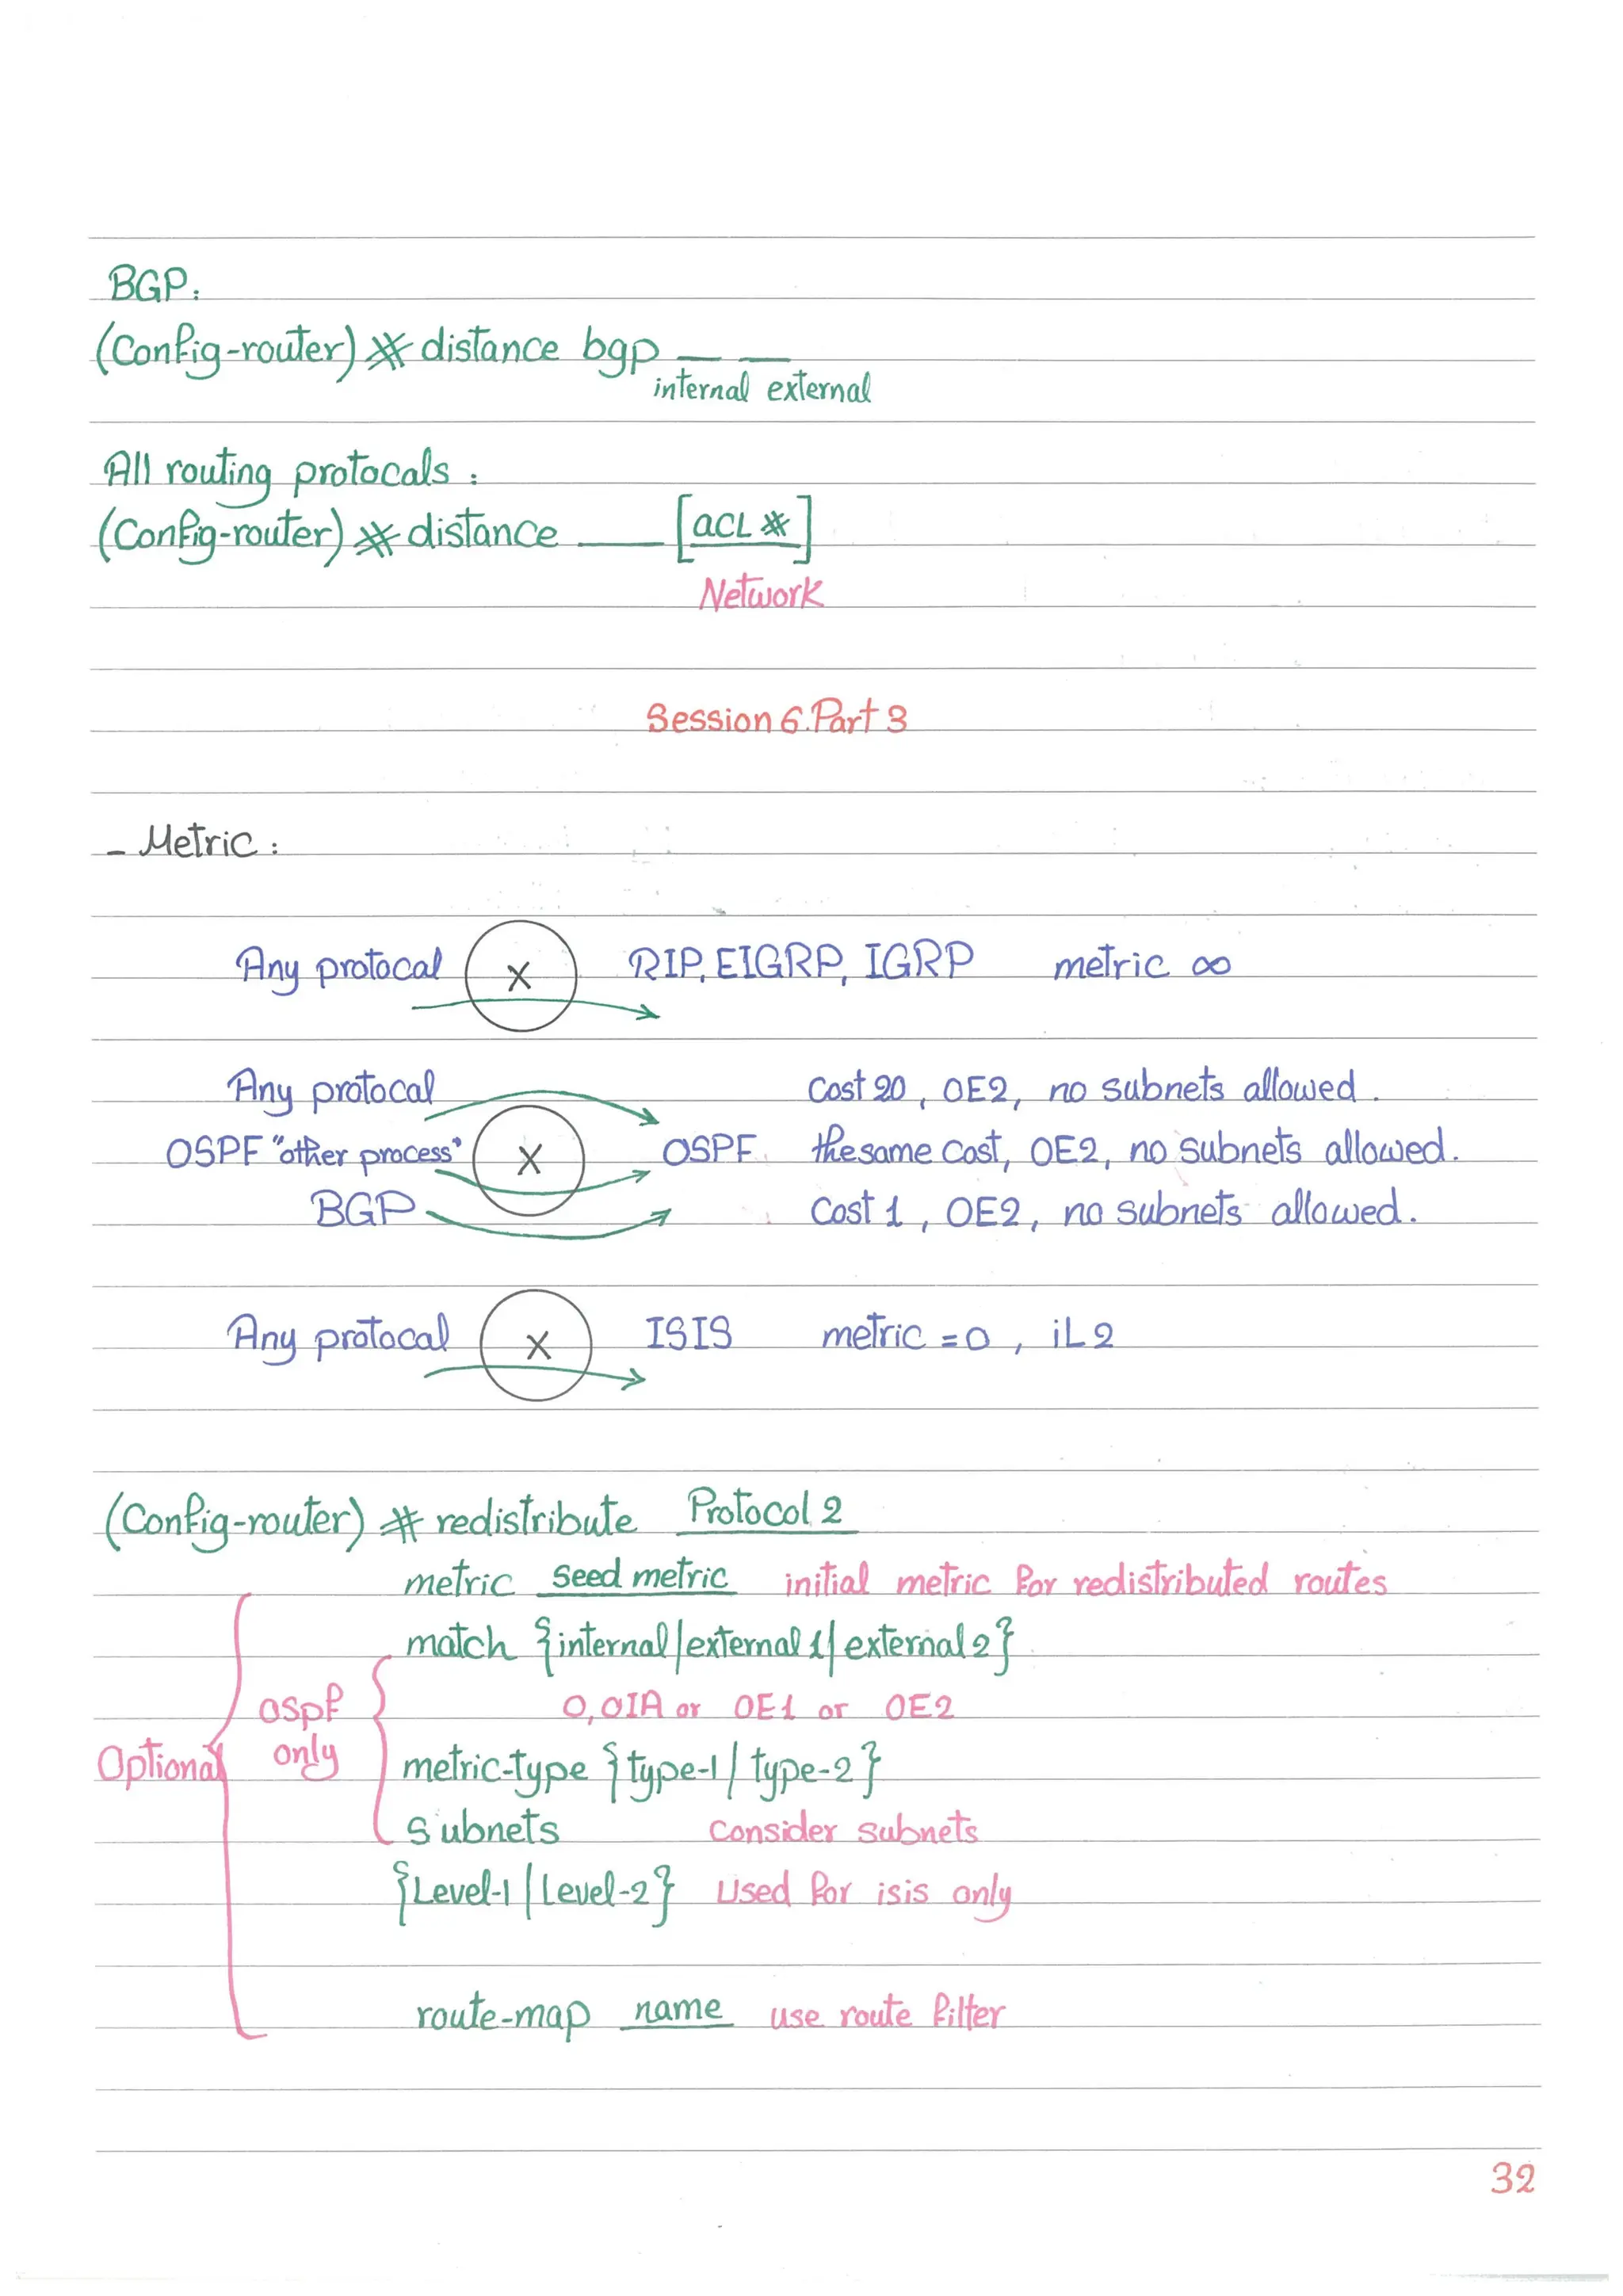 BGP:
(Config-router)# distance bgp __ __
internal external
All routing protocals :
(Config-router)# distance ____ [ACL #]
Network
Session 6.Part 3
- Metric :
Any protocal X RIP, EIGRP, IGRP metric ∞
Any protocal Cost 20, OE2, no subnets allowed.
OSPF "other process" X OSPF the same Cost, OE2, no subnets allowed.
BGP Cost 1, OE2, no subnets allowed.
Any protocal X ISIS metric = 0, iL2
(Config-router)# redistribute Protocol 2
metric seed metric initial metric for redistributed routes
match {internal/external 1/external 2}
ospf O, OIA or OE1 or OE2
Optional only metric-type {type-1/type-2}
Subnets Consider subnets
{Level-1/Level-2} Used for isis only
route-map name use route filter
32